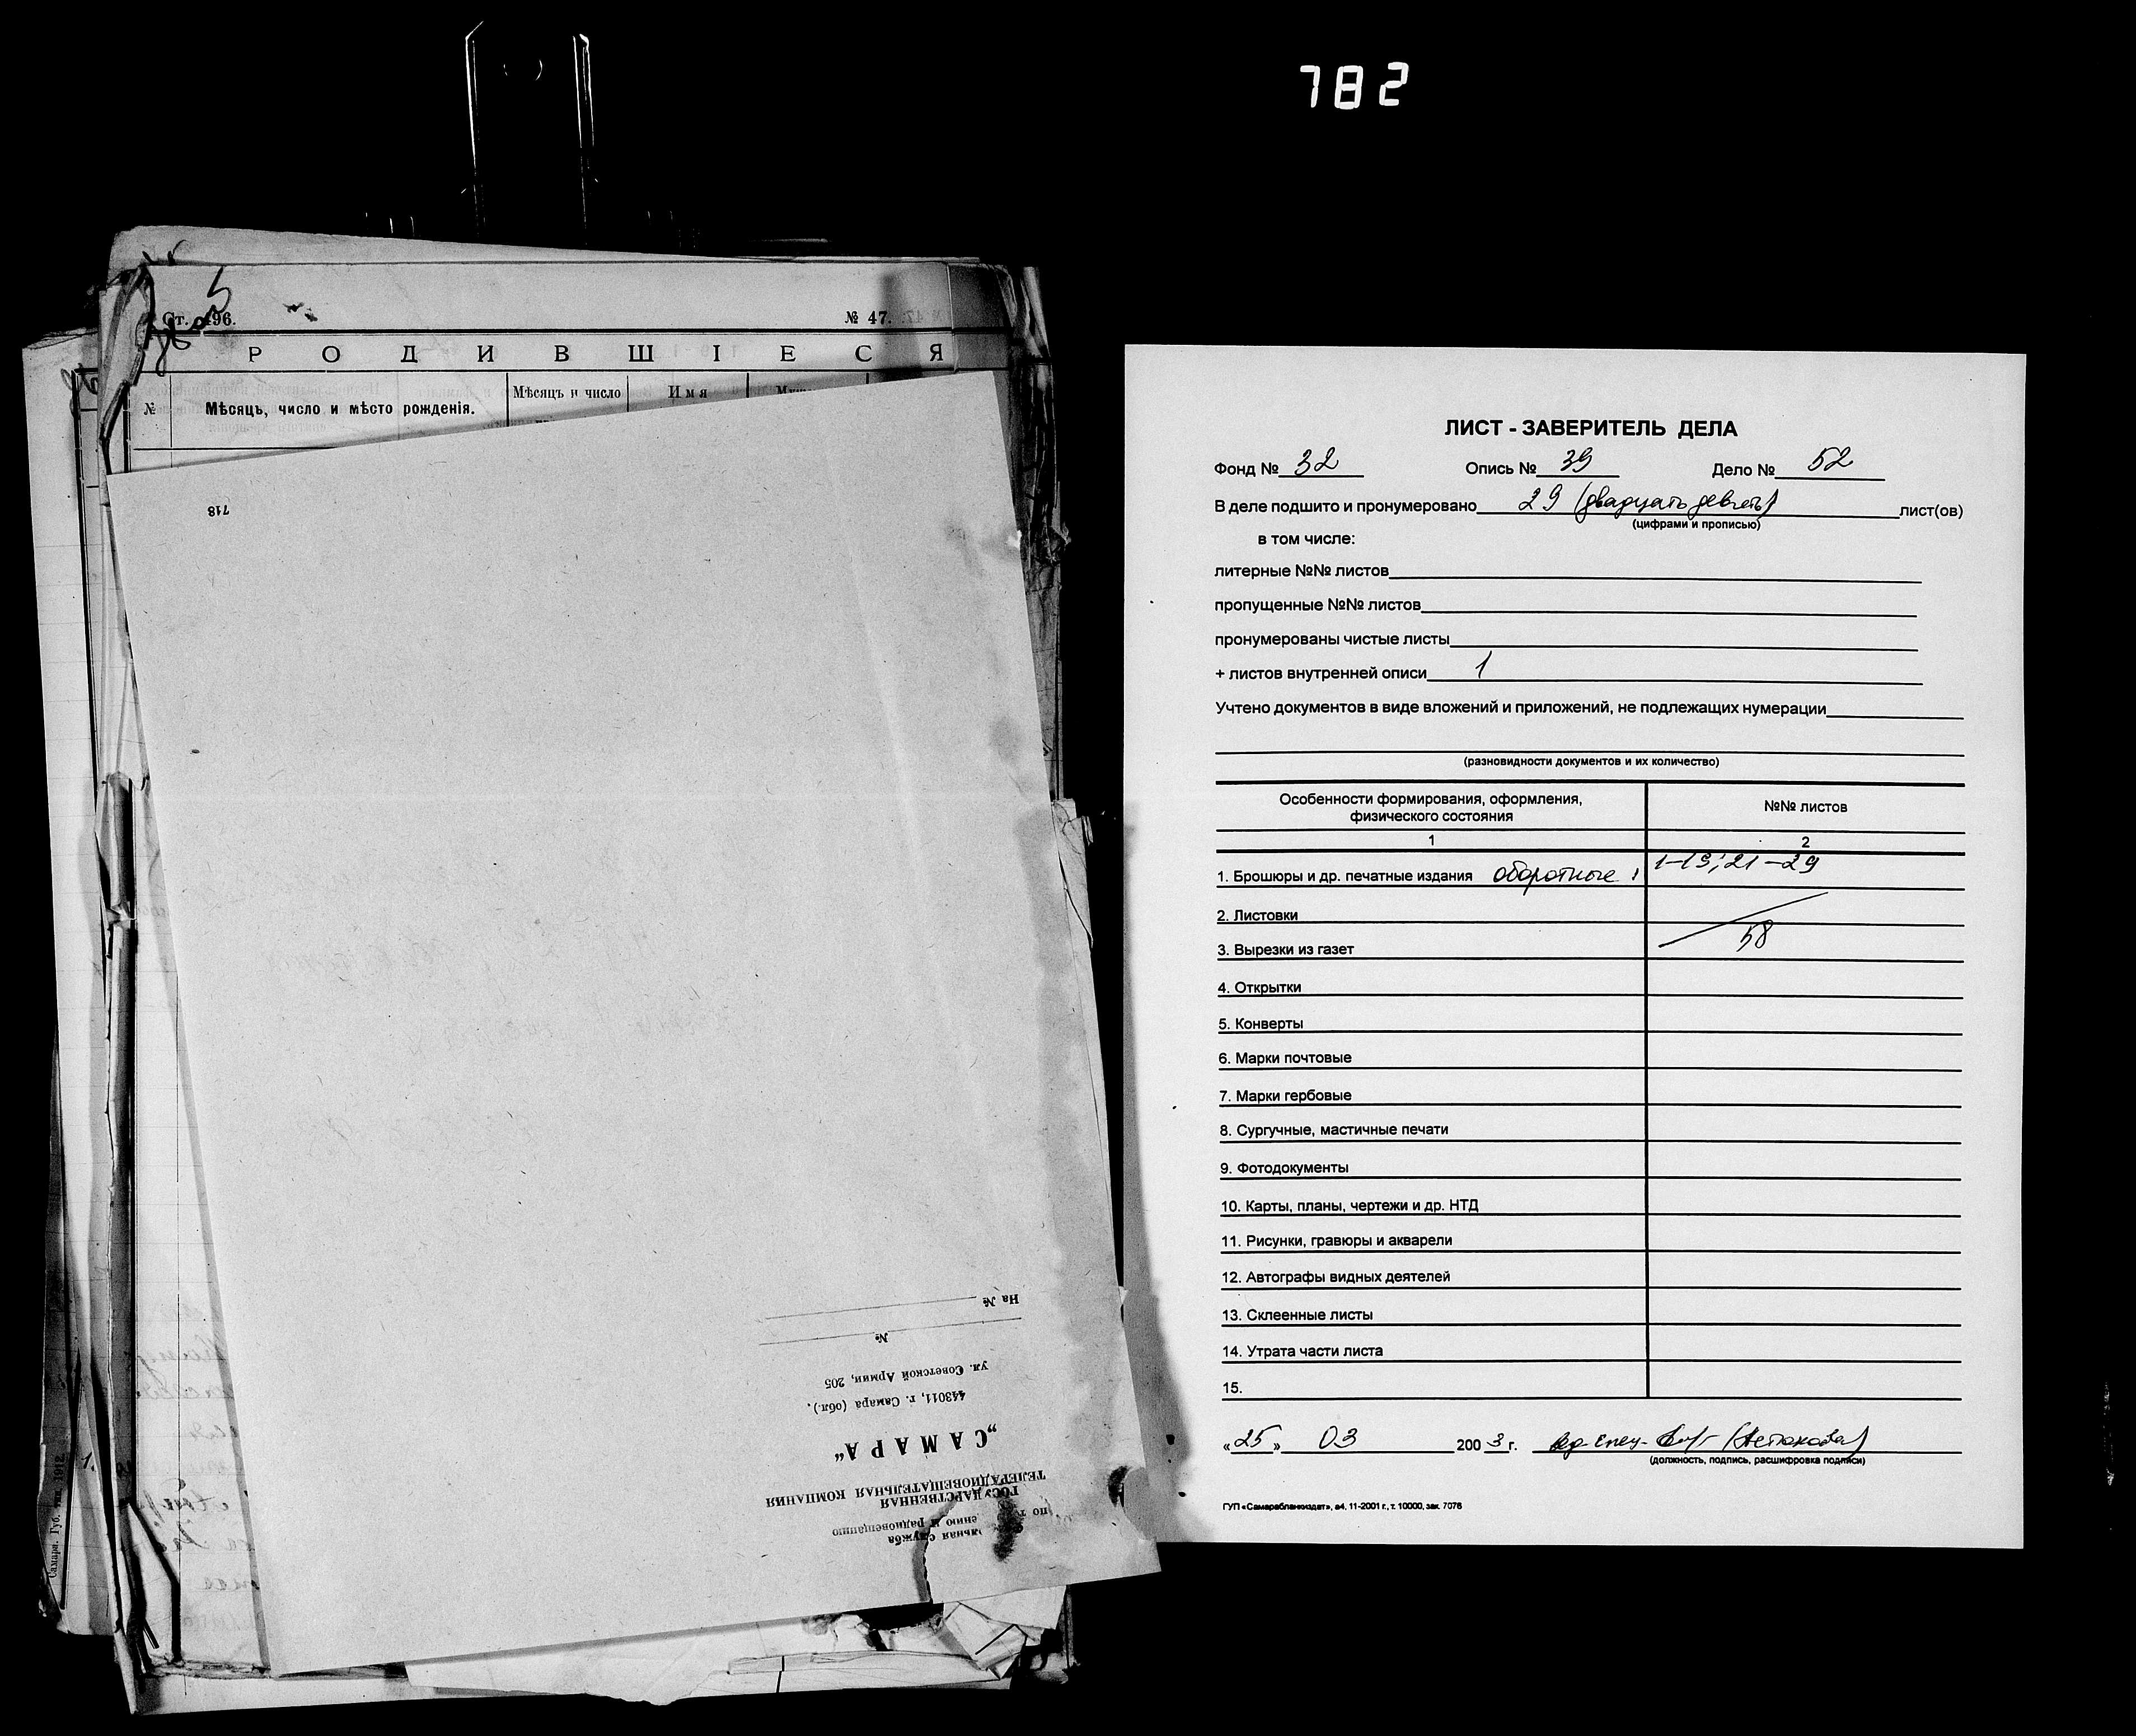 782
5
Ст. 196.
№ 47.
РОДИВШІЕСЯ
№
Мѣсяцъ, число и мѣсто рожденія.
Мѣсяцъ и число
Имя
718
На №
№
ул. Советской Армии, 205
443011, г. Самара (обл.),
„САМАРА"
ТЕЛЕРАДИОВЕЩАТЕЛЬНАЯ КОМПАНИЯ
ГОСУДАРСТВЕННАЯ
по
ению и радиовещанию
льная служба
Самара. Губ. тип. 1912
1.
ЛИСТ - ЗАВЕРИТЕЛЬ ДЕЛА
Фонд № 32 Опись № 39 Дело № 52
В деле подшито и пронумеровано 29 (двадцать девять) лист(ов)
(цифрами и прописью)
в том числе:
литерные №№ листов
пропущенные №№ листов
пронумерованы чистые листы
+ листов внутренней описи 1
Учтено документов в виде вложений и приложений, не подлежащих нумерации
(разновидности документов и их количество)
Особенности формирования, оформления,
физического состояния
№№ листов
1 2
1. Брошюры и др. печатные издания оборотные: 1-19; 21-29
2. Листовки
3. Вырезки из газет 58
4. Открытки
5. Конверты
6. Марки почтовые
7. Марки гербовые
8. Сургучные, мастичные печати
9. Фотодокументы
10. Карты, планы, чертежи и др. НТД
11. Рисунки, гравюры и акварели
12. Автографы видных деятелей
13. Склеенные листы
14. Утрата части листа
15.
«25» 03 2003 г.
(должность, подпись, расшифровка подписи)
ГУП «Самарабланкиздат», а4, 11-2001 г., т. 10000, зак. 7076